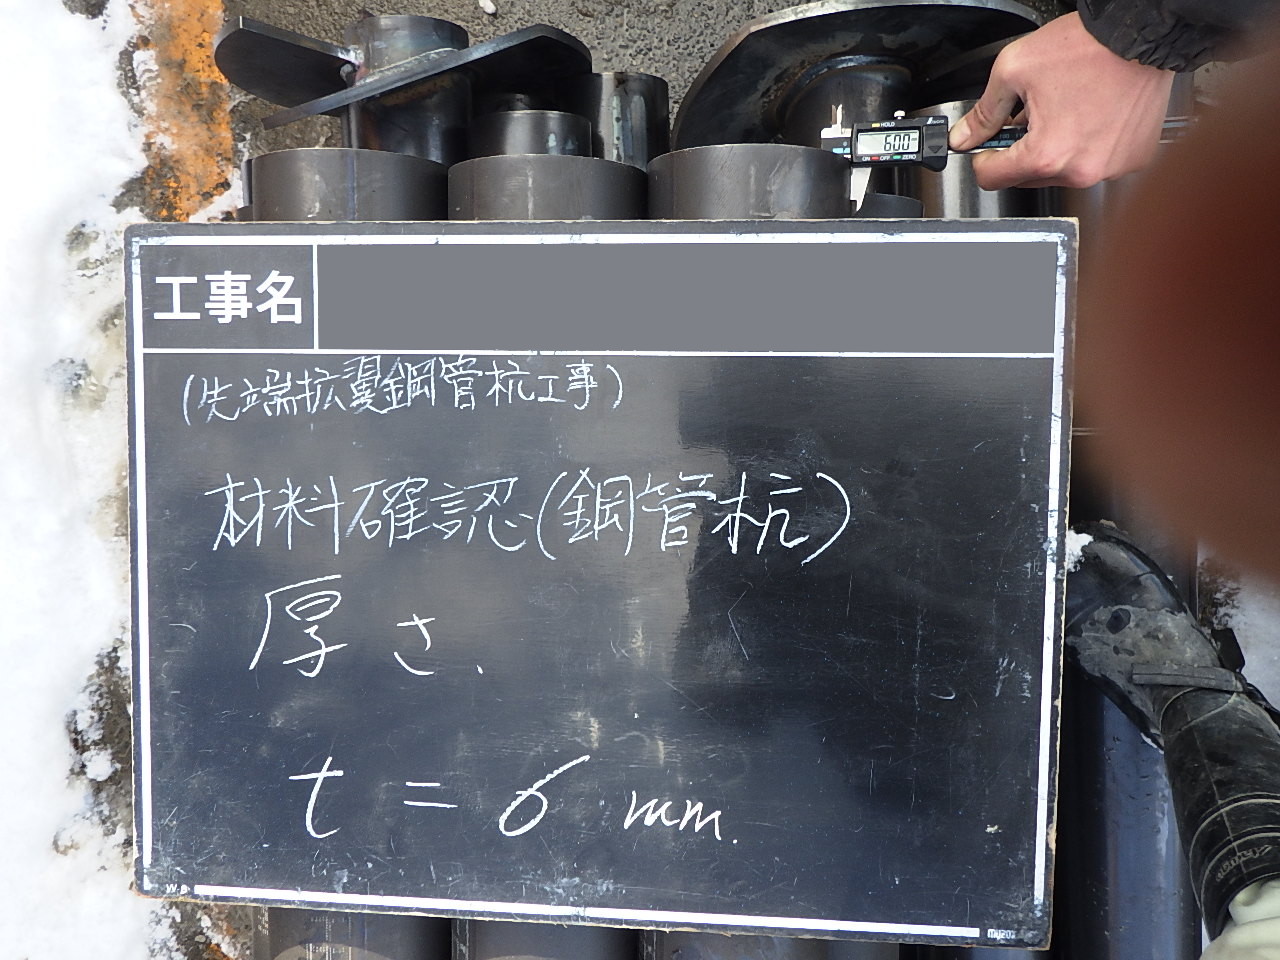 HOLD
6.00
ON OFF ZERO
工事名
(先端拡翼鋼管杭工事)
材料確認(鋼管杭)
厚さ
t = 6 mm.
W-6